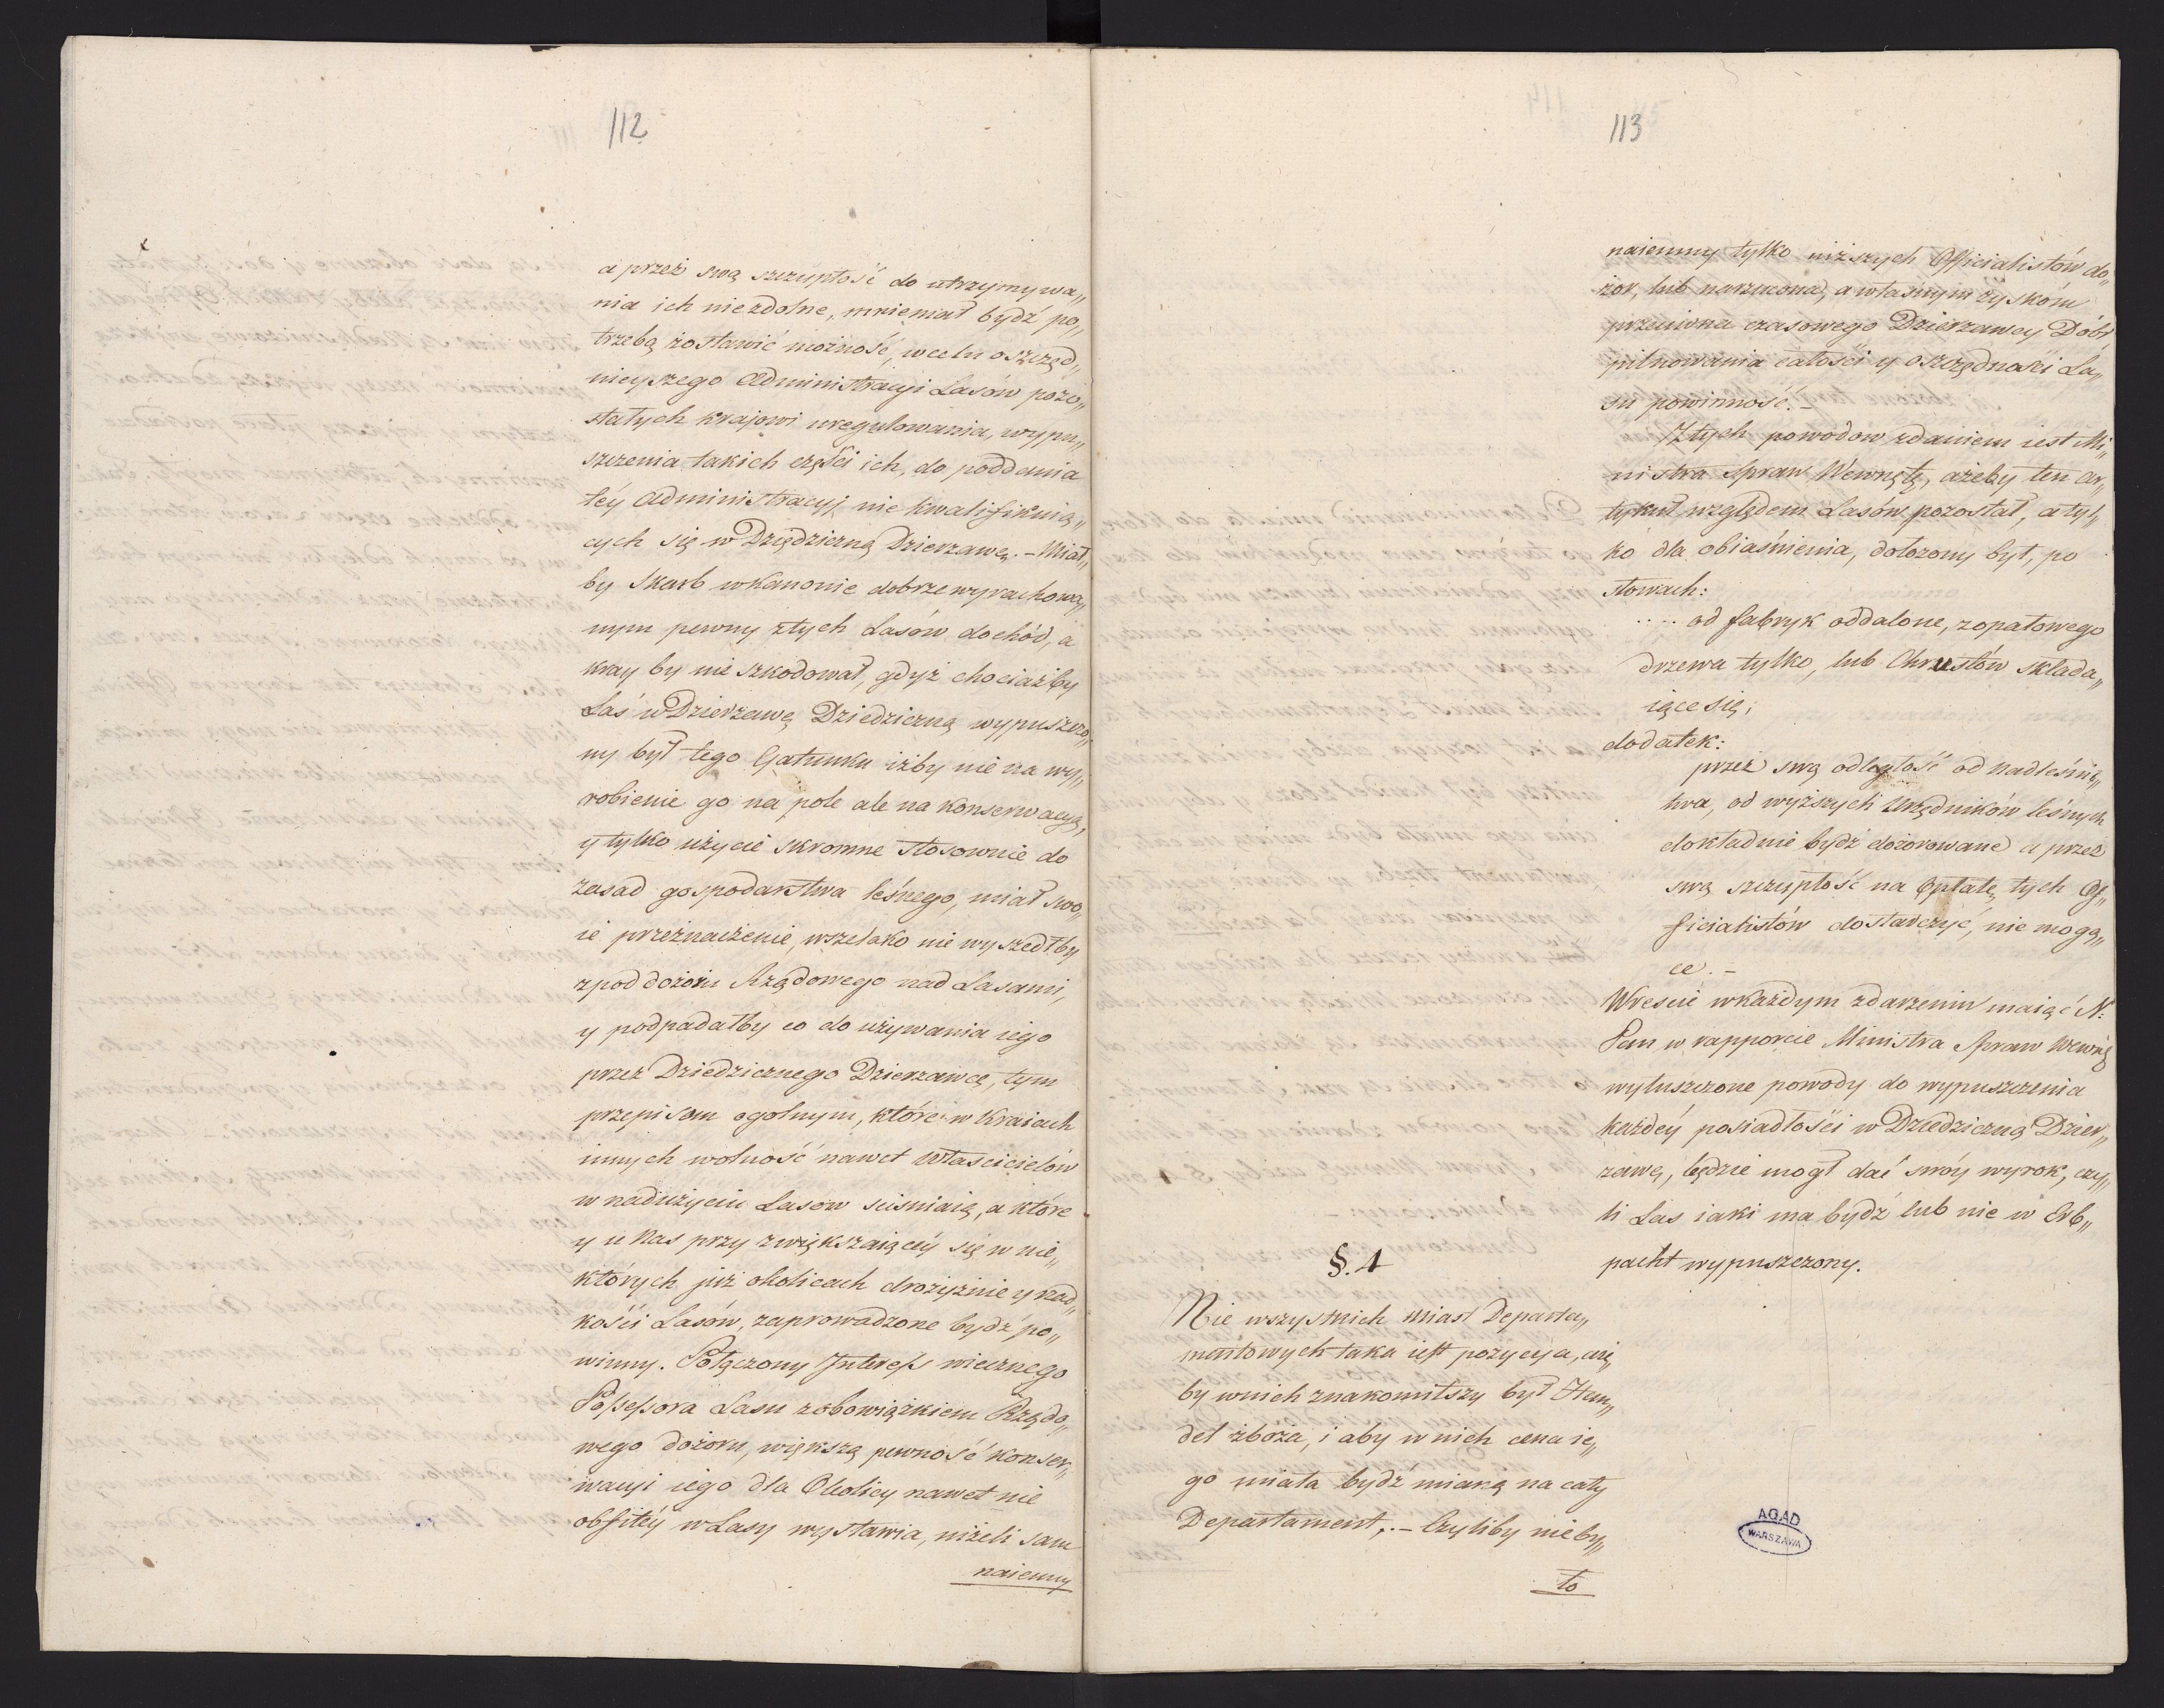 112
a przez swą szczupłość do utrzymywa„
nia ich niezdolne, mniemał bydź po„
trzebą zostawić możność, w celu oszczęd„
nieyszego Administracyi Lasów pozo„
stałych krajowi uregulowania, wypu„
szczenia takich części ich, do poddania
téy Administracyi nie kwalifikuią„
cych się w Dziedziczną Dzierzawę. – Miał„
by Skarb w kanonie dobrze wyrachowa„
nym pewny z tych Lasów dochód, a
kray by nie szkodował, gdyż chociażby
Las w Dzierzawę Dziedziczną wypuszczo„
ny był tego Gatunku iżby nie na wy„
robienie go na pole ale na konserwacyą,
y tylko użycie skromne stosownie do
zasad gospodarstwa leśnego, miał swo„
ie przeznaczenie, wszelako nie wyszedłby
z pod dozoru Rządowego nad Lasami,
y podpadałby co do używania iego
przez Dziedzicznego Dzierzawcę, tym
przepisom ogolnym, które w Kraiach
innych wolność nawet Właścicielów
w nadużyciu Lasow sciśniaią, a które
y u Nas przy zwiększaiącéy się w nie„
których już okolicach drożyźnie y rzad„
kości Lasów, zaprowadzone bydź po„
winny. Połączony Interess wiecznego
Possessora Lasu z obowiązkiem Rządo„
wego dozoru, większą pewność konser„
wacyi iego dla Okolicy nawet nie
obfitéy w Lasy wystawia, niżeli sam
naiemny
113
naiemny tylko niższych Officialistów do„
zor, lub narzucona, a własnym zyskóm
przeciwna czasowego Dzierzawcy Dóbr
pilnowania całości y oszczędności La„
su powinność. –
Z tych powodow zdaniem iest Mi„
nistra Spraw Wewnętz, ażeby ten ar„
tykuł względem Lasów pozostał, a tyl„
ko dla obiaśnienia, dołożony był, po
słowach:
.... od fabryk oddalone, z opałowego
drzewa tylko, lub Chrustów składa„
iące się;
dodatek:
przez swą odległość od Nadleśnic„
twa, od wyższych Urzędników leśnych
dokładnie bydź dozorowane a przez
swą szczupłość na Opłatę tych Of„
ficialistów dostarczyć, nie mogą„
ce. –
Wreście w każdym zdarzeniu maiąć N:
Pan w rapporcie Ministra Spraw Wewnę
wyłuszczone powody do wypuszczenia
każdéy posiadłości w Dziedziczną Dzier„
zawę, będzie mogł dać swóy wyrok, czy„
li Las iaki ma bydź lub nie w Erb„
pacht wypuszczony.
§. 4
Nie wszystkich Miast Departa„
mentowych taka iest pozycyia, iż„
by w nich znakomitszy był Han„
del zboża, i aby w nich cena ie„
go miała bydź miarą na cały
Departament,. – Czyliby nieby„
to
AGAD
WARSZAWA